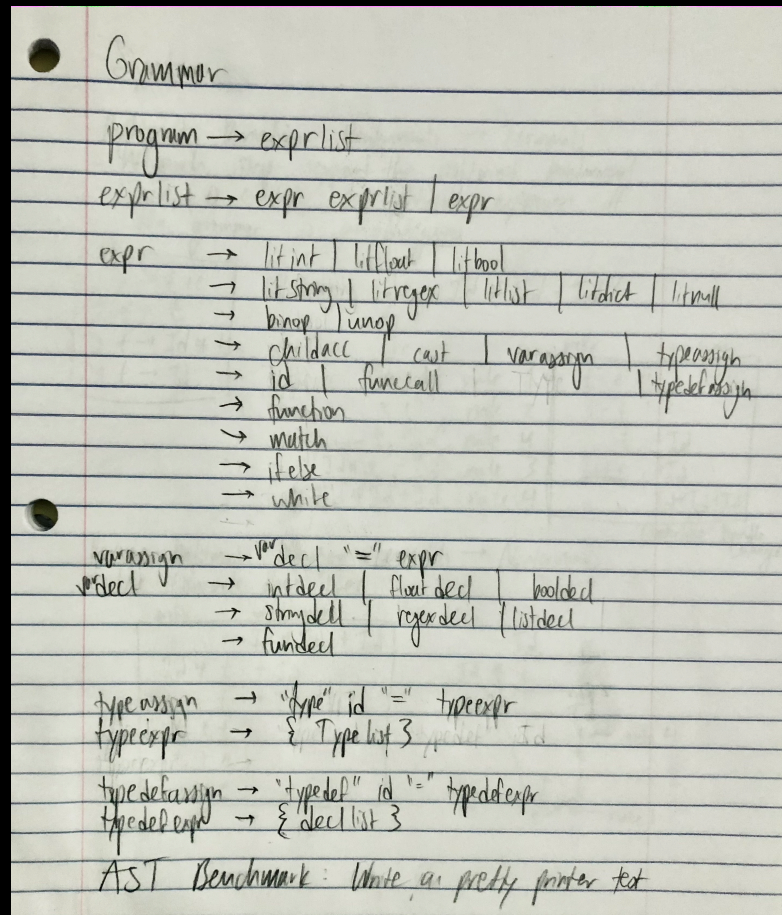 Grammar
program → exprlist
exprlist → expr exprlist | expr
expr → litint | litfloat | litbool
→ litstring | litregex | litlist | litdict | litnull
→ binop | unop
→ childacc | cast | varassign | typeassign
→ id | funccall | typedefassign
→ function
→ match
→ ifelse
→ while
varassign → vardecl "=" expr
vardecl → intdecl | floatdecl | booldecl
→ stringdecl | regexdecl | listdecl
→ fundecl
typeassign → "type" id "=" typeexpr
typeexpr → { Typelist }
typedefassign → "typedef" id "=" typedefexpr
typedefexpr → { decllist }
AST Benchmark: Write a pretty printer test